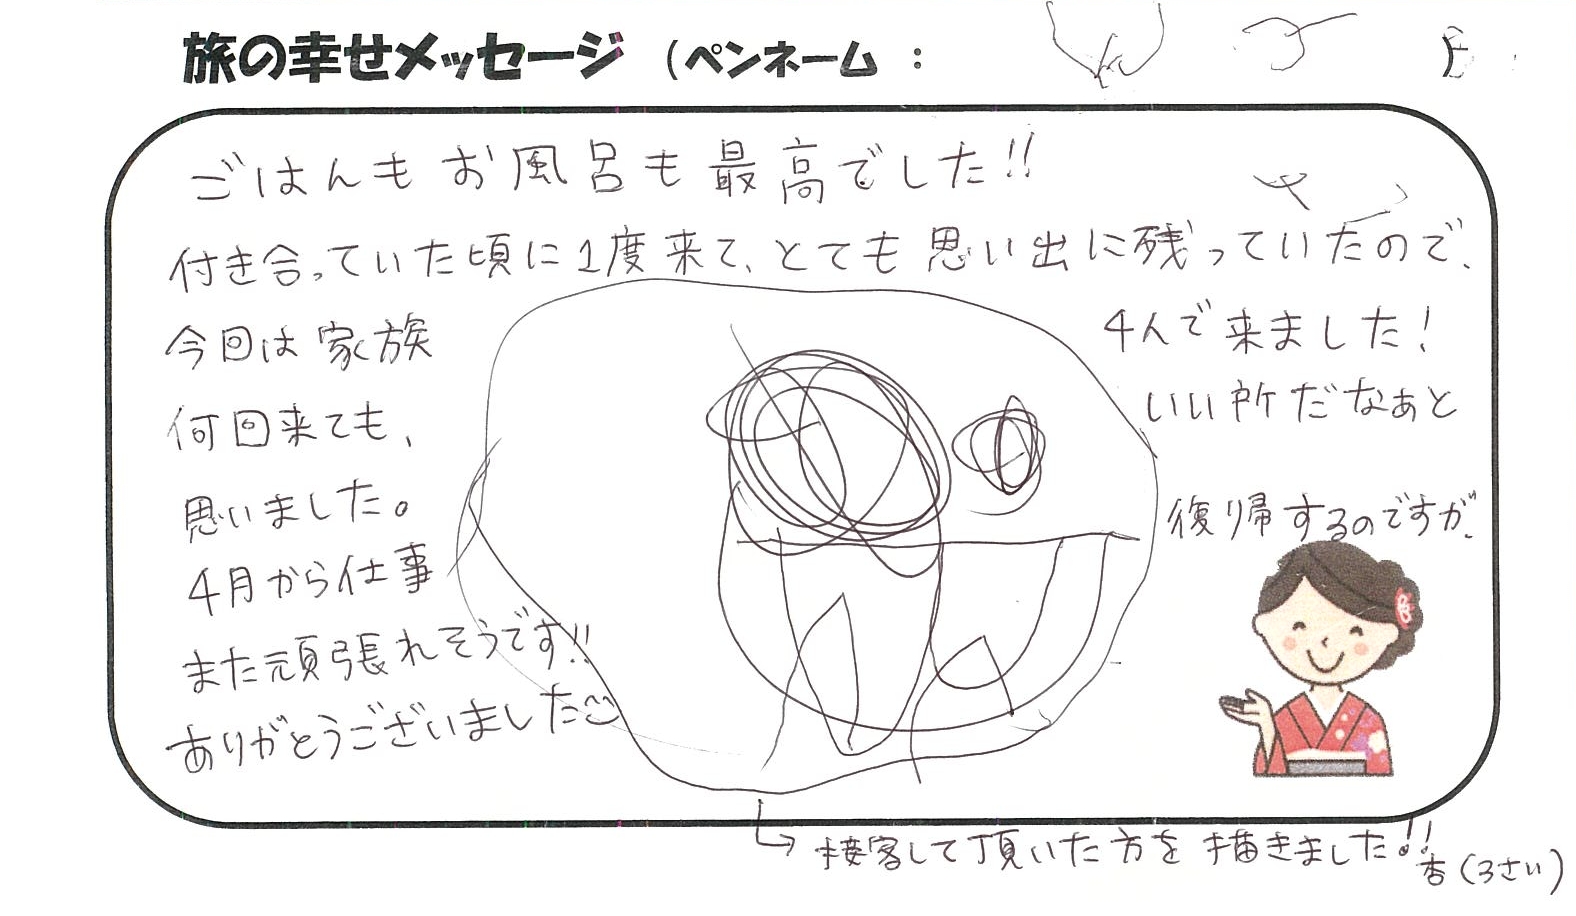 旅の幸せメッセージ (ペンネーム :
ごはんもお風呂も最高でした!!
付き合っていた頃に1度来て、とても思い出に残っていたので、
今回は家族4人で来ました!
何回来ても、いい所だなぁと
思いました。
4月から仕事復帰するのですが、
また頑張れそうです!!
ありがとうございました
↳ 接客して頂いた方を描きました!!
杏(3さい)